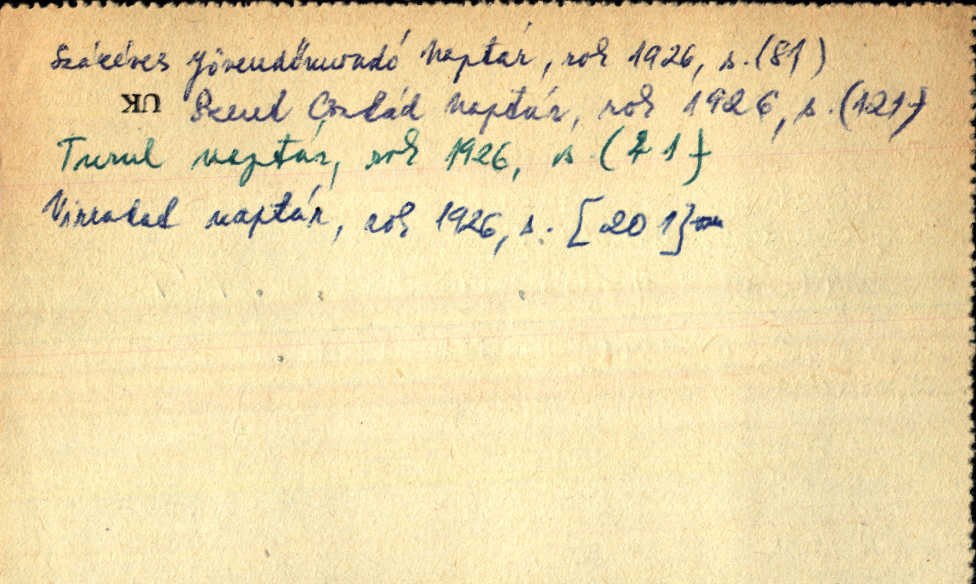 Százéves Jövendőmondó Naptár, rok 1926, s. (81)
UK Szent Család Naptár, rok 1926, s. (121)
Turul naptár, rok 1926, s. (71)
naptár, rok 1926, s. [201]